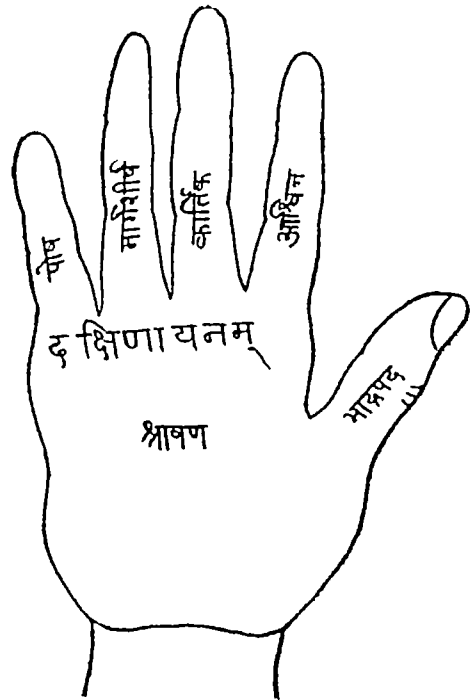 पोष
मार्गशीर्ष
कार्तिक
आश्विन
दक्षिणायनम्
भाद्रपद
श्राषण